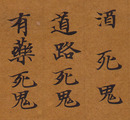 酒死鬼
道路死鬼
有藥死鬼